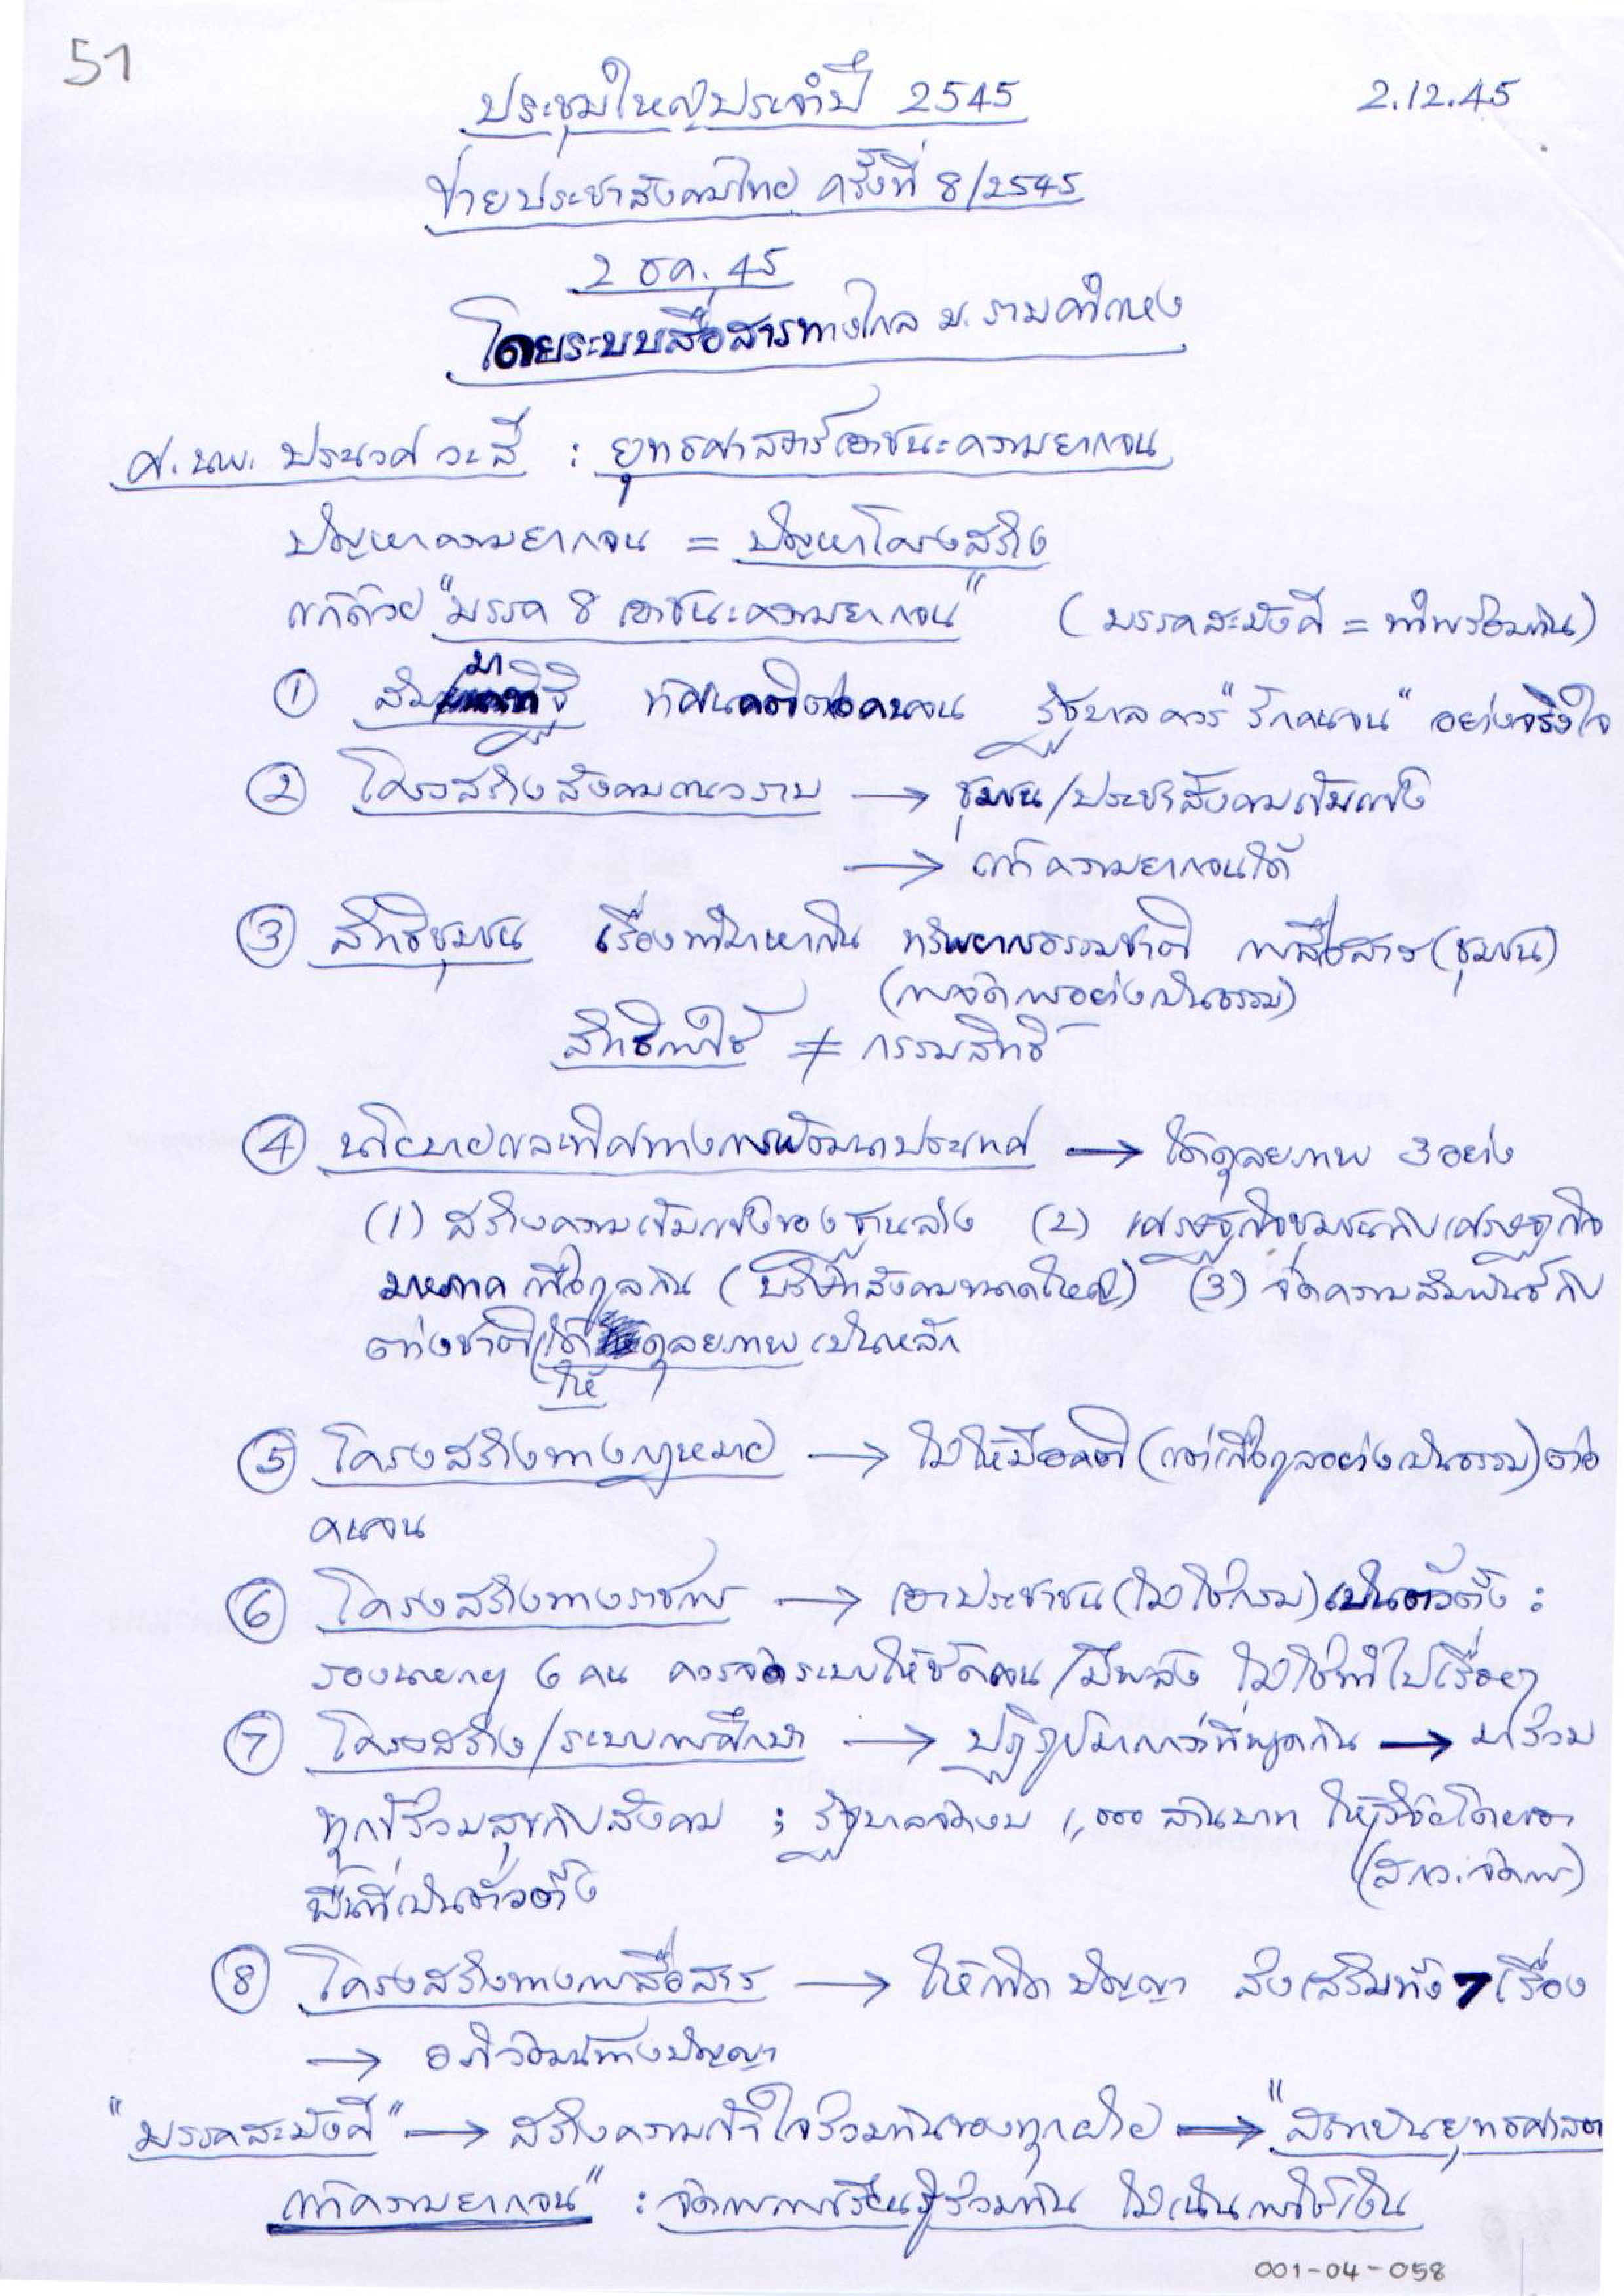 51
ประชุมใหญ่ประจำปี 2545
2.12.45
ข่ายประชาสังคมไทย ครั้งที่ 8/2545
2 ธค. 45
โดยระบบสื่อสารทางไกล ม. รามคำแหง
ศ. นพ. ประเวศ วะสี : ยุทธศาสตร์เอาชนะความยากจน
ปัญหาความยากจน = ปัญหาโครงสร้าง
แก้ด้วย "มรรค 8 เอาชนะความยากจน" (มรรคสะมังคี = ทำพร้อมกัน)
① สัมมาทิฐิ ทัศนคติต่อคนจน รัฐบาลควร "รักคนจน" อย่างจริงใจ
② โครงสร้างสังคมแนวราบ → ชุมชน/ประชาสังคมเข้มแข็ง
→ แก้ความยากจนได้
③ สิทธิชุมชน เรื่องทำมาหากิน ทรัพยากรธรรมชาติ การสื่อสาร (ชุมชน)
(การจัดการอย่างเป็นธรรม)
สิทธิการใช้ ≠ กรรมสิทธิ์
④ นโยบายและทิศทางการพัฒนาประเทศ → ได้ดุลยภาพ 3 อย่าง
(1) สร้างความเข้มแข็งของฐานล่าง (2) เศรษฐกิจชุมชนกับเศรษฐกิจ
มหภาค เกื้อกูลกัน (บริษัทสังคมขนาดใหญ่) (3) จัดความสัมพันธ์กับ
ต่างชาติให้ได้ดุลยภาพเป็นหลัก
⑤ โครงสร้างทางกฎหมาย → ไม่ให้มีอคติ (แต่เกื้อกูลอย่างเป็นธรรม) ต่อ
คนจน
⑥ โครงสร้างทางราชการ → เอาประชาชน (ไม่ใช่กรม) เป็นตัวตั้ง :
รองนายกฯ 6 คน ควรจัดระบบให้ชัดเจน/มีพลัง ไม่ใช่ทำไปเรื่อยๆ
⑦ โครงสร้าง/ระบบการศึกษา → ปฏิรูปมากกว่าที่พูดกัน → มาร่วม
ทุกข์ร่วมสุขกับสังคม ; รัฐบาลจัดงบ 1,000 ล้านบาท ให้วิจัยโดยเอา
(สกว. จัดการ)
พื้นที่เป็นตัวตั้ง
⑧ โครงสร้างทางการสื่อสาร → ให้เกิดปัญญา ส่งเสริมทั้ง 7 เรื่อง
→ อภิวัฒน์ทางปัญญา
"มรรคสะมังคี" → สร้างความเข้าใจร่วมกันของทุกฝ่าย → "สถาบันยุทธศาสตร์
แก้ความยากจน" : จัดการการเรียนรู้ร่วมกัน ไม่เน้นการใช้เงิน
001-04-058